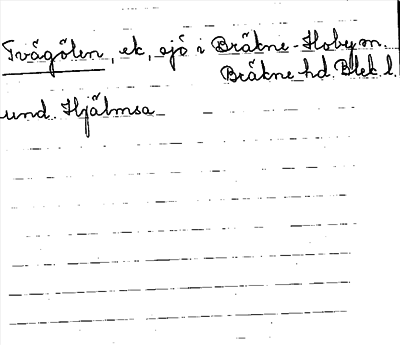 Tvågölen, ek, sjö i Bräkne-Hoby sn.
Bräkne hd. Blek. l.
und. Hjälmsa